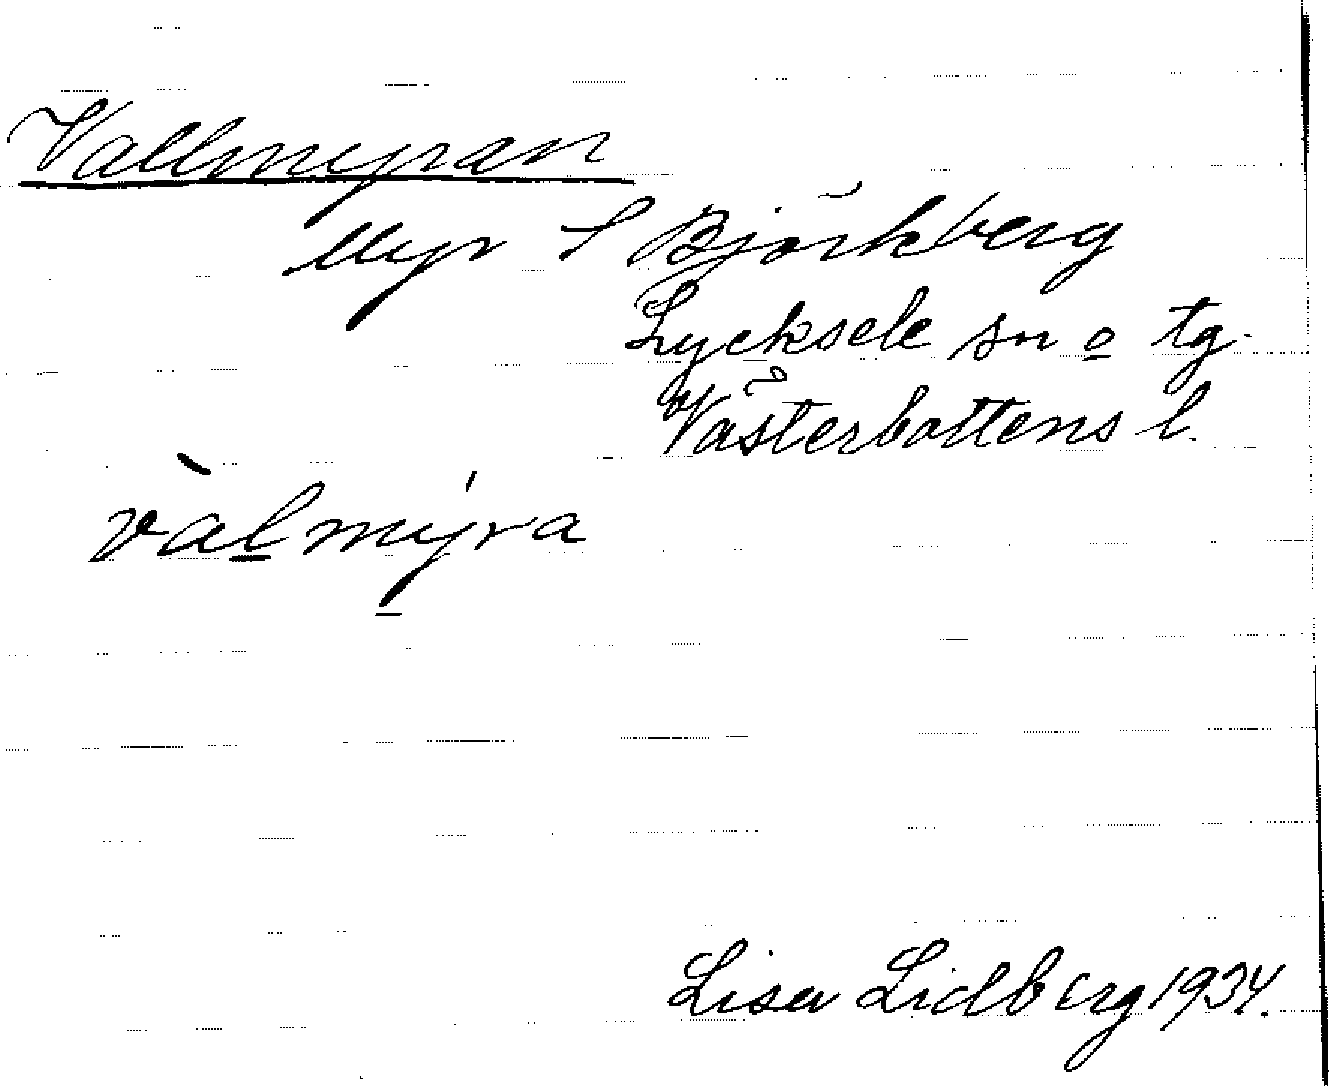 Vallmyran
Myr S Björkberg
Lycksele sn o tg.
Västerbottens l.
vàlmýra
Lisa Lidberg 1934.